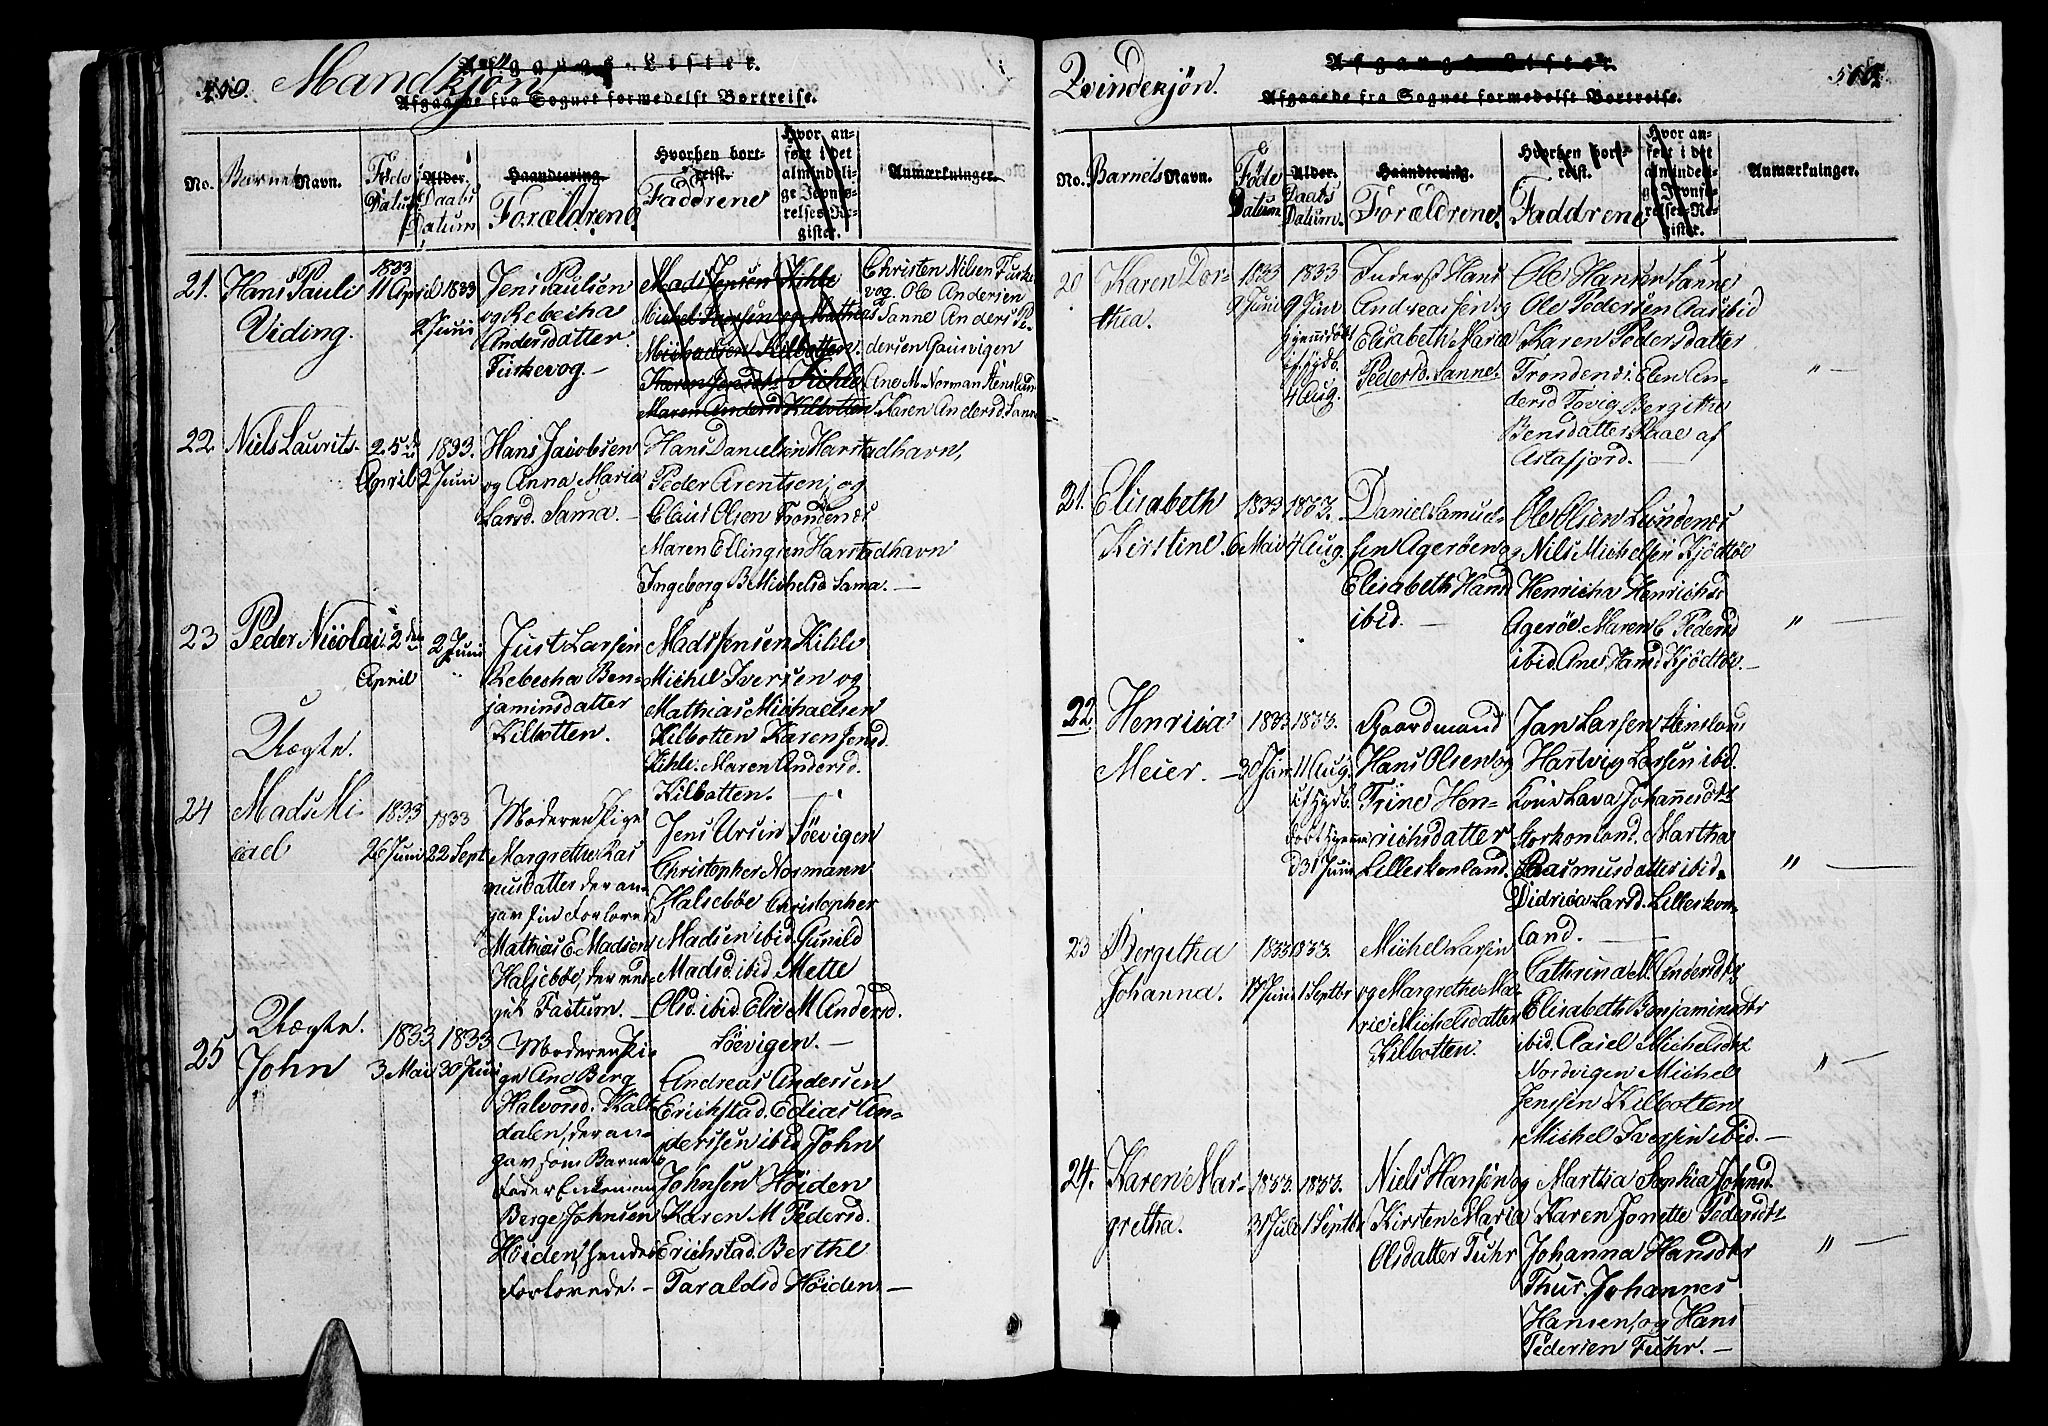 510. Mandkjön
Afgangs-Lister.
Afgaaede fra Sognet formedelst Bortreise.
No.
Barnets Navn.
Föde Datum
Alder.
Daabs Datum
Haandtering.
Forældrene.
Hvorhen bortreist.
Faddrene
Hvor anført i det almindelige Jevnførelses-Register.
Anmærkninger.
21. Hans Pauli
Viding.
1833
11 April
1833
2 Juni
Jens Paulsen
og Rebecha
Andersdatter
Mads Jensen Kihle
Michaelsen Kilbotten.
Maren Andersd Kilbotten
Christen Nilsen
vog. Ole Andersen
Sanne Anders Pe-
dersen Gausvigen
Ane M. Norman
Maren Andersd. Sanne
22 Niels Laurits.
25de
April
1833.
2 Juni
Hans Jacobsen
og Anna Maria
Larsd. Sama.
Hans Danielsen Harstadhavn,
Peder Arentsen, og
Claus Olsen Trondenæs
Maren Ellingsen Harstadhavn
Ingeborg B Michelsd Sama. —
23 Peder Nicolai
2den
April
2 Juni
Just Larsen
Rebecha Ben-
jaminsdatter
Kilbotten.
Mads Jensen Kihle
Michel Iversen og
Mathias Michaelsen
Kilbotten Karen Jensd.
Kihle. Maren Andersd.
Kilbotten. —
Uægte.
24 Mads Mi-
cael
1833
26 Juni
1833
22 Sept
Moderen Pige
Margrethe Ras
musdatter der an-
gav sin Forlovede
Mathias E Madsen
Halsebøe, der ved-
gik Factum. —
Jens Ursin Söevigen
Christopher Normann
Halsebøe Christopher
Madsen ibid Gunild
Madsd. ibid Mette
Olsd. ibid Elen M Andersd.
Söevigen. —
Uægte.
25 John
1833
3 Mai
1833
30 Juni
Moderen Pi-
ge Ane Berg
Halvorsd. Kalt-
dalen, der an-
gav som Barnets
Fader Enkeman
Berge Johnsen
Höiden, hendes
Forlovede. —
Andreas Andersen
Erichstad. Edias An-
derssen ibid John
Johnsen Höiden
Karen M Pedersd.
Erichstad. Berthe
Taraldsd Höiden. —
Qvindekjön.
Afgangs-Lister.
Afgaaede fra Sognet formedelst Bortreise.
No.
Barnets Navn.
Föde Datum
Alder.
Daabs Datum.
Haandtering.
Forældrene.
Hvorhen bortreist.
Faddrene
Hvor anført i det almindelige Jevnførelses-Register.
Anmærkninger.
20 Karen Dor-
thea.
1833
9 Juni
1833
9 Juni
hjemmedøbt
4 Aug.
Inderst Hans
Andreassen og
Elisabeth Maria
Pedersd. Sanne.
Ole Hansen Sanne
Ole Pedersen Aas ibid
Karen Pedersdatter
Trondenes Elen An-
dersd Tovig Bergithe
Bensdatter af
Astafjord. —
" —
21. Elisabeth
Kirstine.
1833
6 Mai
1833.
4 Aug.
Daniel Samuel-
sen Agerøe og
Elisabeth Hansd
ibid. —
Ole Olsen Lundenes
Nils Michelsen Kjödtöe
Henricha Henrichsd
Agerøe. Maren C Pedersd
ibid. Ane Hansd Kjödtöe. —
" —
22 Henrica
Meier. —
1833
30 Jan
1833.
11 Aug.
døbt hjemme
d 31 Juni
Gaardmand
Hans Olsen og
Trine Hen-
richsdatter
Lilleskonland.
Jan Larsen Stensland
Hartvig Larsen ibid.
Lava Johannesdtr
Storkonland. Martha
Rasmusdatter ibid.
Didrica Larsd. Lilleskon-
land. —
" —
23 Bergitha
Johanna.
1833
17 Juni
1833.
1 Septbr
Michel Larsen
og Margrethe Ma-
rie Michelsdatter
Kilbotten.
Cathrina M. Andersdtr
Elisabeth Benjaminsdtr
ibid. Michelsdtr
Nordvigen Michel
Jenssen Kilbotten
Michel Iversen ibid. —
" —
24. Karen Mar-
gretha.
1833.
31 Juli
1833.
1 Septbr
Niels Hansen og
Kirsten Maria
Olsdatter Fuhr
Martha Sophia Johnsd.
Karen Jonette Pedersdtr
Johanna Hansdtr
Thur. Johannes
Hansen, og Hans
Pedersen Fuhr. —
" —